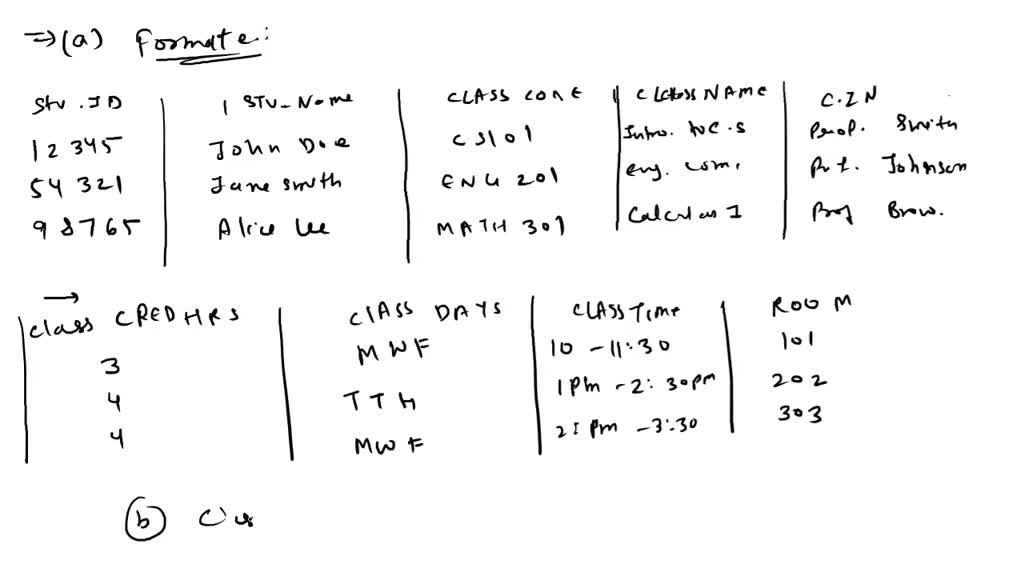 ⇒(a) Formate:
Stu.ID | STU-Name | CLASS CODE | CLASS NAME | C.IN
12345 | John Doe | CS101 | Intro. to C.S | Prof. Smith
54321 | Jane Smith | ENG 201 | eng. com. | Prf. Johnson
98765 | Alice Lee | MATH 301 | Calculus I | Prof Brow.
→
class CRED HRS | ClASS DAYS | CLASSTIME | ROOM
3 | MWF | 10 - 11:30 | 101
4 | TTH | 1Pm - 2:30pm | 202
4 | MWF | 2: pm - 3:30 | 303
(b) Cus